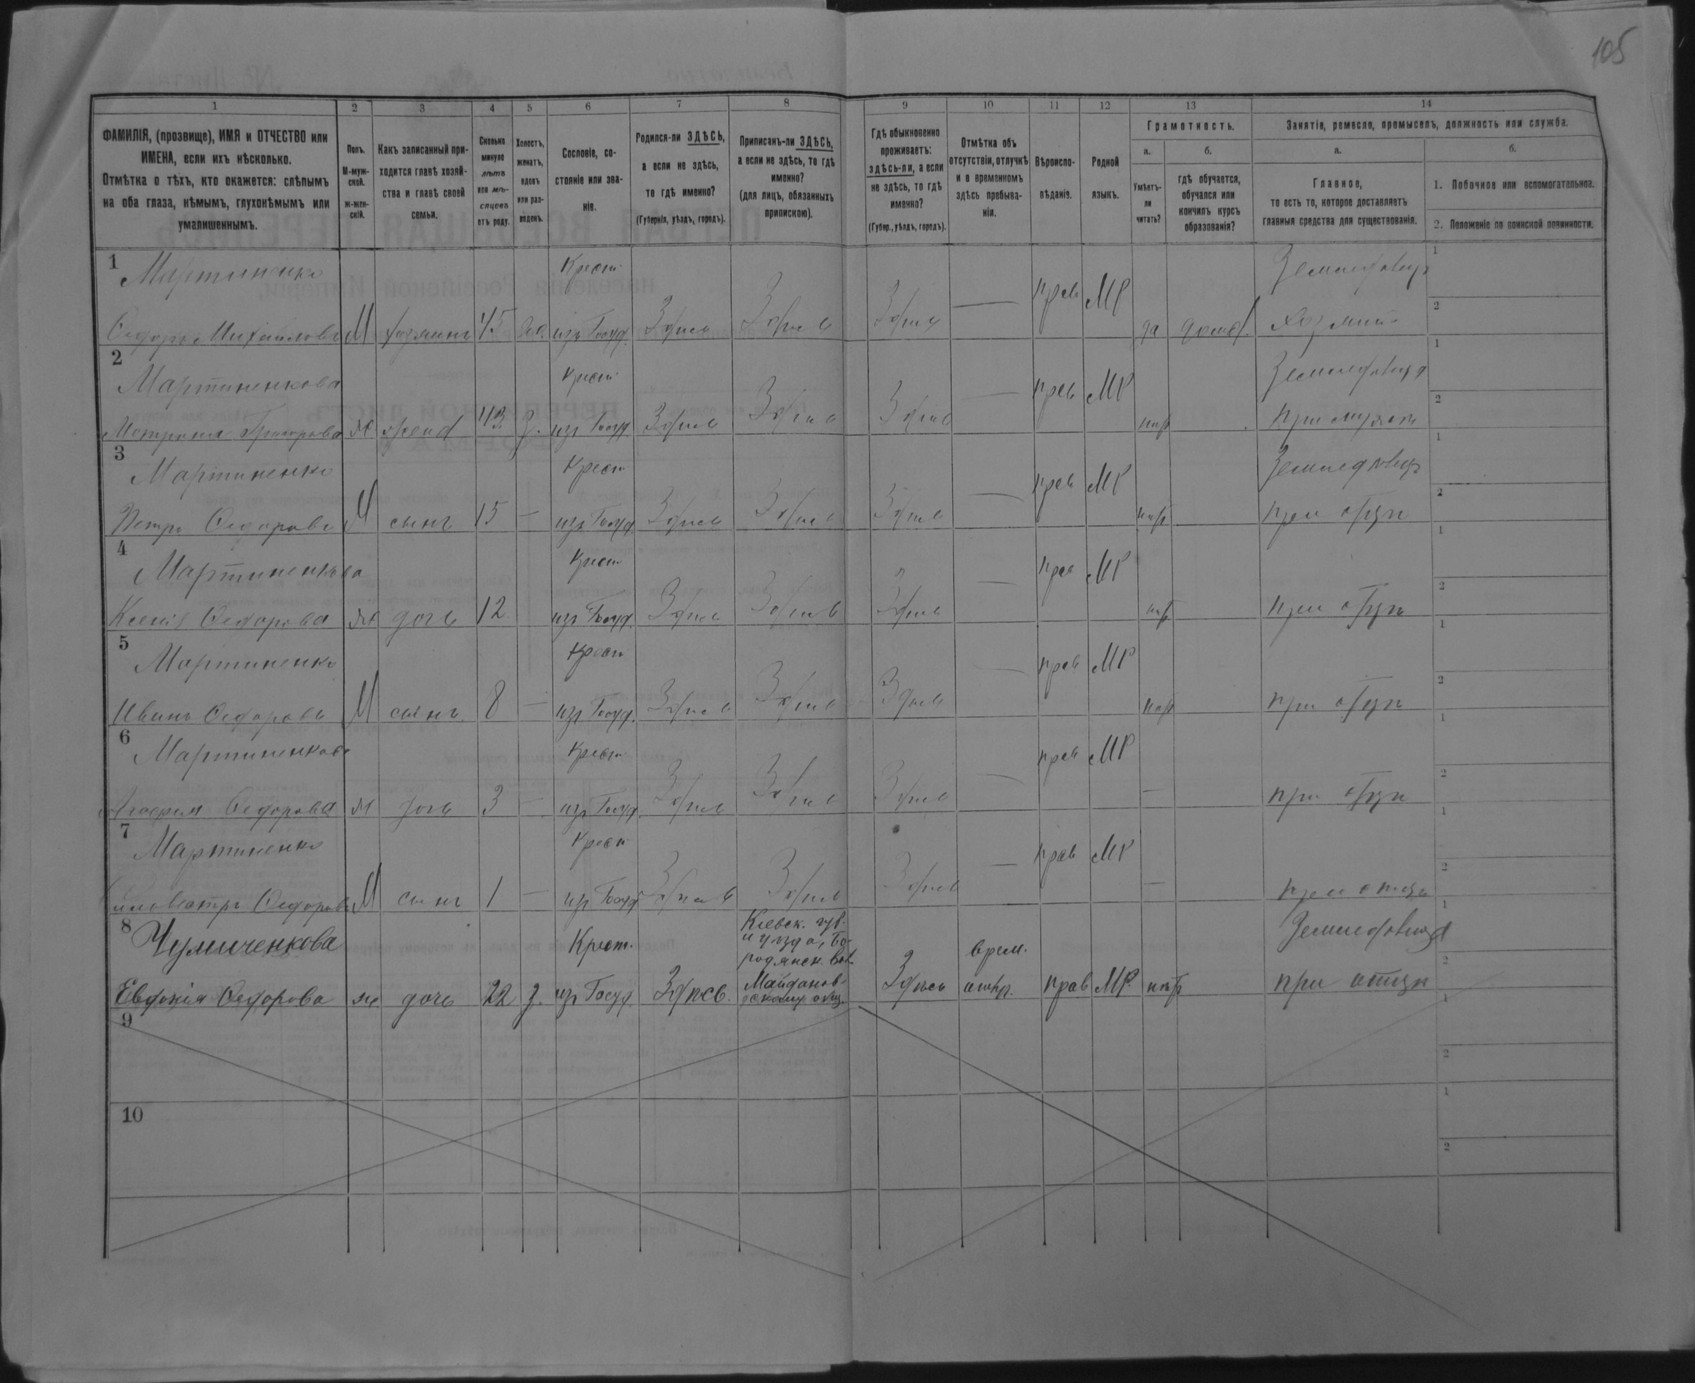 105
1 2 3 4 5 6 7 8 9 10 11 12 13 14
ФАМИЛІЯ, (прозвище), ИМЯ и ОТЧЕСТВО или
ИМЕНА, если ихъ нѣсколько.
Отмѣтка о тѣхъ, кто окажется: слѣпымъ
на оба глаза, нѣмымъ, глухонѣмымъ или
умалишеннымъ.
Полъ.
М-муж-
ской.
Ж-жен-
скій.
Какъ записанный при-
ходится главѣ хозяй-
ства и главѣ своей
семьи.
Сколько
минуло
лѣтъ
или мѣ-
сяцевъ
отъ роду.
Холостъ,
женатъ,
вдовъ
или раз-
веденъ.
Сословіе, со-
стояніе или зва-
ніе.
Родился-ли ЗДѢСЬ,
а если не здѣсь,
то гдѣ именно?
(Губернія, уѣздъ, городъ).
Приписанъ-ли ЗДѢСЬ,
а если не здѣсь, то гдѣ
именно?
(для лицъ, обязанныхъ
припискою).
Гдѣ обыкновенно
проживаетъ:
здѣсь-ли, а если
не здѣсь, то гдѣ
именно?
(Губер., уѣздъ, городъ).
Отмѣтка объ
отсутствіи, отлучкѣ
и о временномъ
здѣсь пребыва-
ніи.
Вѣроиспо-
вѣданіе.
Родной
языкъ.
Грамотность.
а.
Умѣетъ-
ли
читать?
б.
гдѣ обучается,
обучался или
кончилъ курсъ
образованія?
Занятіе, ремесло, промыселъ, должность или служба.
а.
Главное,
то есть то, которое доставляетъ
главныя средства для существованія.
б.
1. Побочное или вспомогательное.
2. Положеніе по воинской повинности.
1 Мартиненко Крест. прав МР Земледѣлецъ 1
Федоръ Михайловъ М хозяинъ 45 изъ Госуд. Здѣсь Здѣсь Здѣсь — да хозяинъ 2
2 Мартиненкова Крест. прав МР 1
Григорова ж жена 43 з. изъ Госуд Здѣсь Здѣсь Здѣсь — нѣт при мужѣ 2
3 Мартиненко Крест прав МР Земледѣлецъ 1
Петръ Федоровъ М сынъ 15 — изъ Госуд. Здѣсь Здѣсь Здѣсь — нѣт при отцѣ 2
4 Мартиненкова Крест прав МР 1
Ксенія Федорова ж дочь 12 изъ Госуд. Здѣсь Здѣсь Здѣсь — нѣт при отцѣ 2
5 Мартиненко Крест прав МР 1
Иванъ Федоровъ М сынъ 8 — изъ Госуд. Здѣсь Здѣсь Здѣсь — нѣт при отцѣ 2
6 Мартиненкова Крест. прав МР 1
Федорова ж дочь 3 — изъ Госуд Здѣсь Здѣсь Здѣсь — — при отцѣ 2
7 Мартиненко Крест прав МР 1
Федоровъ М сынъ 1 — изъ Госуд Здѣсь Здѣсь Здѣсь — — при отцѣ 2
8 Чумиченкова Крест. Кіевск. губ. и уѣзда, Бо-
родянск. вол. врем. 1
Евдокія Федорова ж дочь 22 з. изъ Госуд Здѣсь. Майданов-
скому общ. Здѣсь отлуч. прав МР нѣт при отцѣ 2
9 1
2
10 1
2